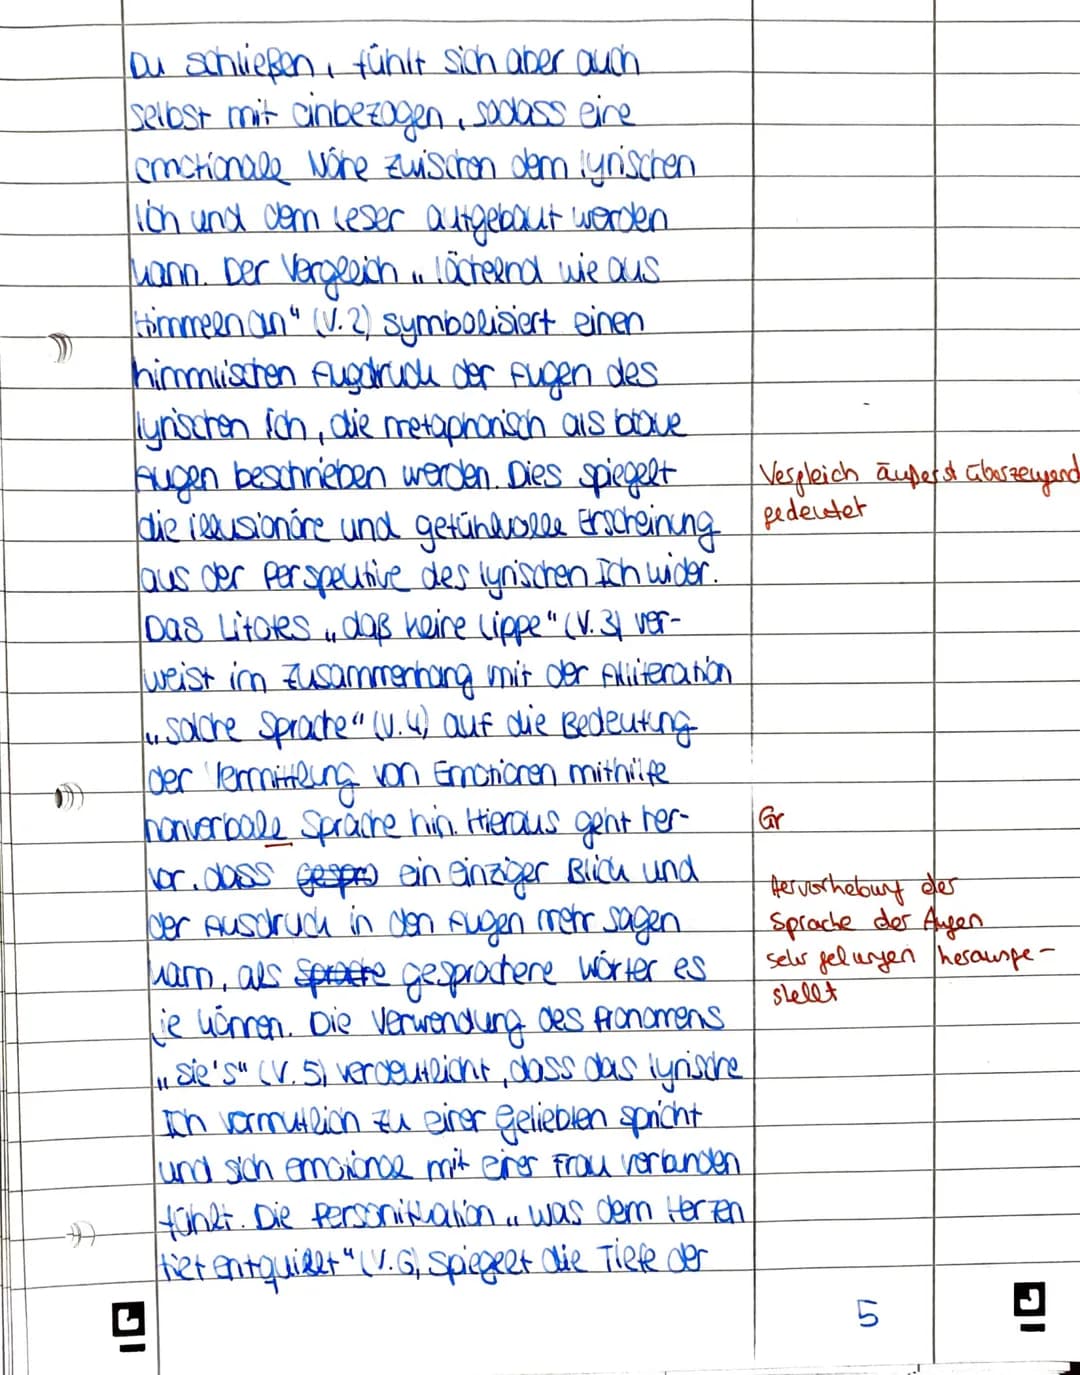 Du schließen, fühlt sich aber auch
selbst mit einbezogen, sodass eine
emotionale Nähe zwischen dem lyrischen
Ich und dem Leser aufgebaut werden
kann. Der Vergleich „lächelnd wie aus
Himmeln an“ (V. 2) symbolisiert einen
himmlischen Augdruck der Augen des
lyrischen Ich, die metaphorisch als blaue
Augen beschrieben werden. Dies spiegelt
Vergleich äußerst überzeugend
die illusionäre und gefühlvolle Erscheinung
gedeutet
aus der Perspektive des lyrischen Ich wider.
Das Litotes „daß keine Lippe“ (V. 3) ver-
weist im Zusammenhang mit der Alliteration
„solche Sprache“ (V. 4) auf die Bedeutung
der Vermittlung von Emotionen mithilfe
nonverbale Sprache hin. Hieraus geht her-
Gr
vor, dass gespro ein einziger Blick und
Hervorhebung der
der Ausdruck in den Augen mehr sagen
Sprache der Augen
kann, als Sprache gesprochene Wörter es
sehr gelungen herausge-
stellt
je können. Die Verwendung des Pronomens
„sie's“ (V. 5) verdeutlicht, dass das lyrische
Ich vermutlich zu einer Geliebten spricht
und sich emotional mit einer Frau verbunden
fühlt. Die Personifikation „was dem Herzen
tief entquillt“ (V. 6) spiegelt die Tiefe der
5